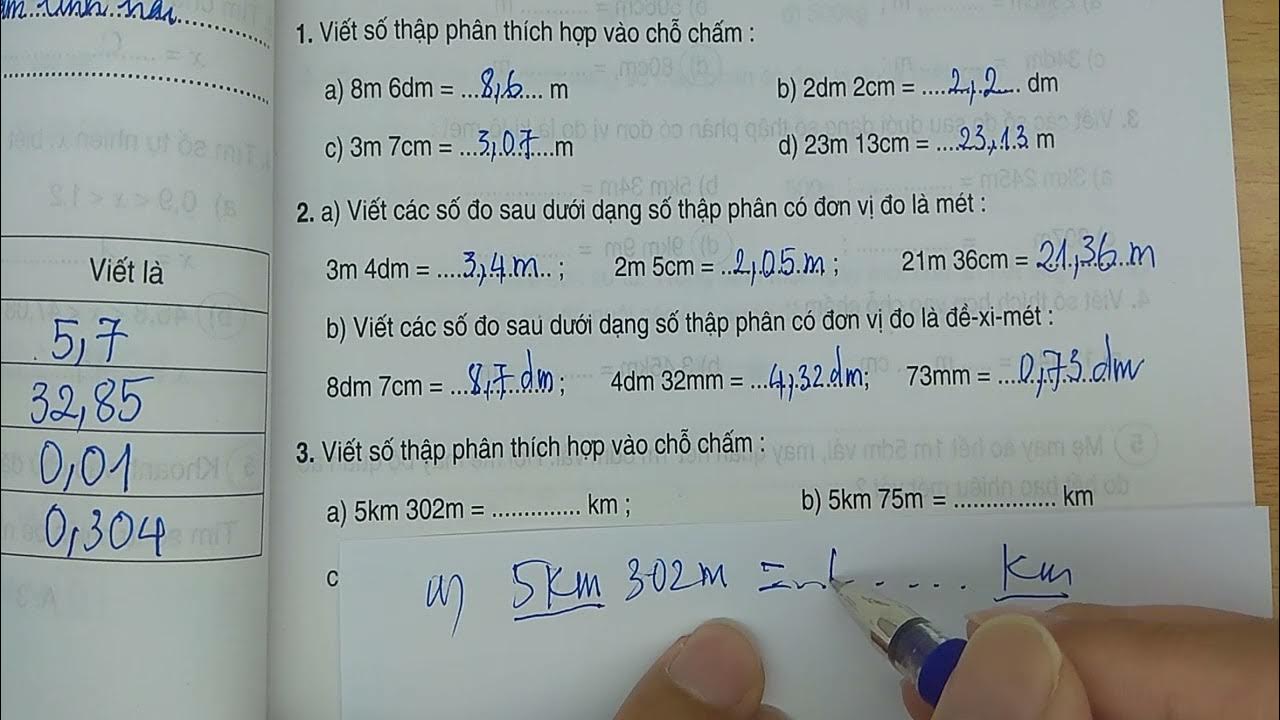 Viết là
5,7
32,85
0,01
0,304
1. Viết số thập phân thích hợp vào chỗ chấm :
a) 8m 6dm = ...8,6.... m
b) 2dm 2cm = ....2,2... dm
c) 3m 7cm = ...3,07....m
d) 23m 13cm = ....23,13 m
2. a) Viết các số đo sau dưới dạng số thập phân có đơn vị đo là mét :
3m 4dm = ....3,4m.. ; 2m 5cm = ..2,05m ; 21m 36cm = 21,36m
b) Viết các số đo sau dưới dạng số thập phân có đơn vị đo là đề-xi-mét :
8dm 7cm = ...8,7dm ; 4dm 32mm = ...4,32dm; 73mm = ....0,73dm
3. Viết số thập phân thích hợp vào chỗ chấm :
a) 5km 302m = .............. km ;
b) 5km 75m = ................ km
c
a) 5km 302m = ..... km